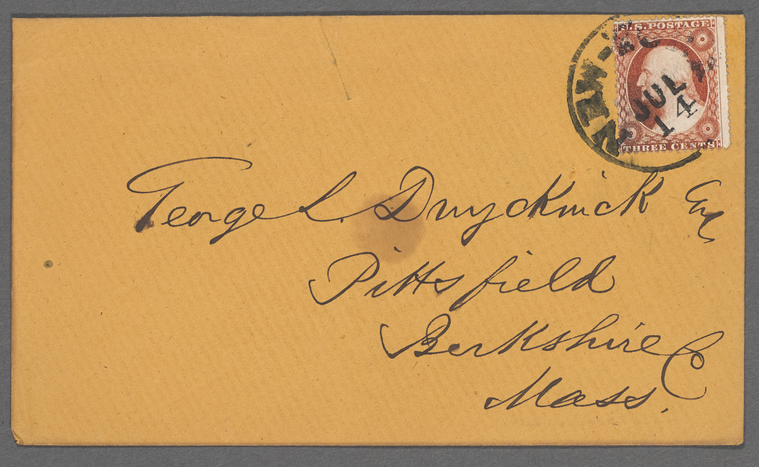 U.S. POSTAGE
NEW-YO
JUL
14
THREE CENTS
George L. Duyckinck Esq
Pittsfield
Berkshire C
Mass.